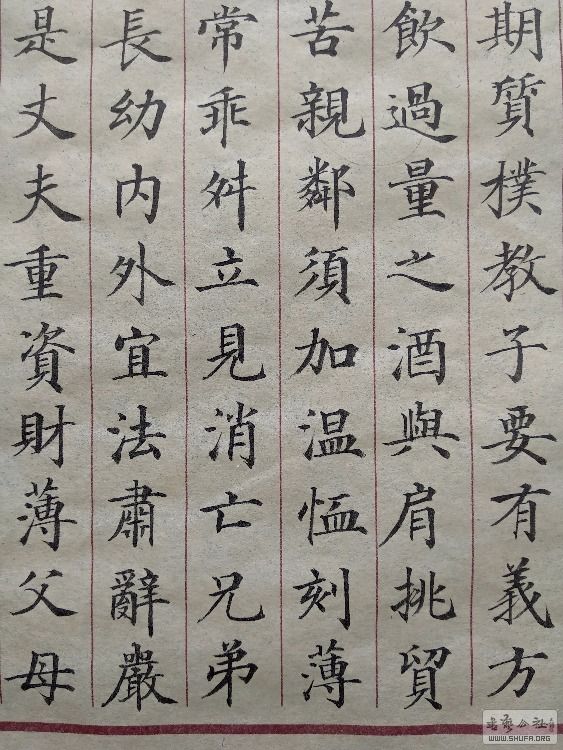 期質樸教子要有義方
飲過量之酒與肩挑貿
苦親鄰須加温恤刻薄
常乖舛立見消亡兄弟
長幼内外宜法肅辭嚴
是丈夫重資財薄父母
书艺公社
WWW.SHUFA.ORG